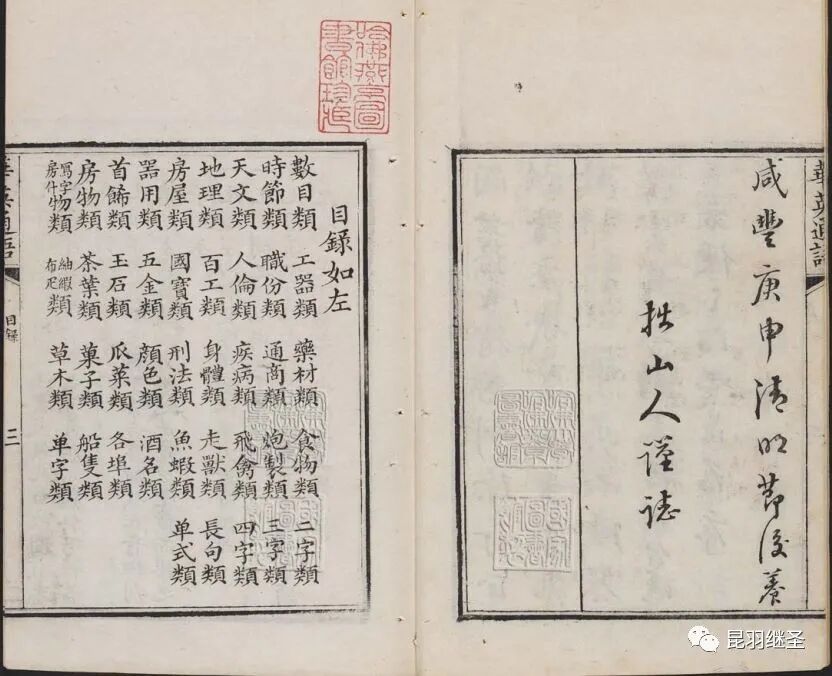 華英通語
咸豐庚申清明節後養
拙山人謹誌
哈佛燕京圖書館珍藏
目錄如左
數目類 工器類 藥材類 食物類 二字類
時節類 職份類 通商類 炮製類 三字類
天文類 人倫類 疾病類 飛禽類 四字類
地理類 百工類 身體類 走獸類 長句類
房屋類 國寶類 刑法類 魚蝦類 单式類
器用類 五金類 顏色類 酒名類
首餙類 玉石類 瓜菜類 各埠類
房物類 茶葉類 菓子類 船隻類
寫字房什物類 紬緞布疋類 草木類 单字類
華英通語
目錄
三
昆羽继圣